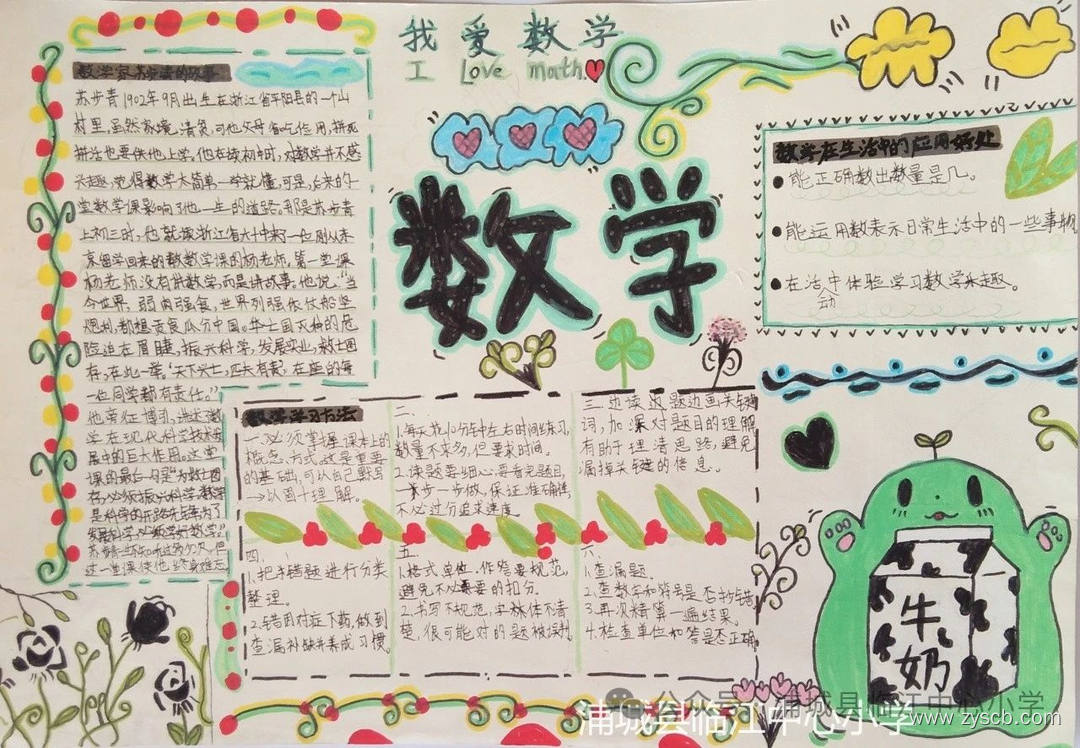 我爱数学
I Love math.
数学
数学家苏步青的故事
苏步青1902年9月出生在浙江省平阳县的一个山
村里,虽然家境清贫,可他父母省吃俭用,拼死
拼活也要供他上学。他在读初中时,对数学并不感
兴趣,觉得数学太简单一学就懂。可是,后来的一
堂数学课影响了他一生的道路。那是苏步青
上初三时,他就读浙江省六十中来了一位刚从东
京留学回来的教数学课的杨老师。第一堂课
杨老师没有讲数学,而是讲故事。他说:“当
今世界,弱肉强食,世界列强依仗船坚
炮利,都想蚕食瓜分中国。中华亡国灭种的危
险迫在眉睫,振兴科学,发展实业,救亡图
存,在此一举。‘天下兴亡,匹夫有责’,在座的每
一位同学都有责任。”
他旁征博引,讲述了数
学在现代科学技术发
展中的巨大作用。这堂
课的最后一句是:“为救亡图
存,必须振兴科学。数学
是科学的开路先锋,为了
发展科学,必须学好数学。”
数学在生活中的应用好处
能正确数出数量是几。
能运用数表示日常生活中的一些事物
在活动中体验学习数学乐趣。
数学学习方法
一、必须掌握课本上的
概念、方式。这是重要
的基础,可以自己默写
→以图十理解。
二、
1.每天花10分钟左右时间练习,
数量不求多,但要求时间。
2.读题要细心:要看完题目,
一步一步做,保证准确性,
不必过分追求速度。
三、边读边题边画关键
词,加深对题目的理解
有助于理清思路,避免
漏掉关键的信息。
四、
1.把手错题进行分类
整理。
2.错因对症下药,做到
查漏补缺并养成习惯。
五、
1.格式单位、作答要规范,
避免不必要的扣分。
2.书写不规范,字体不清
楚,很可能对的题被误判
六、
1.查漏题。
2.查数字和符号是否抄错
3.再次精算一遍结果。
4.检查单位和答是否正确
牛
奶
公众号·浦城县临江中心小学
浦城县临江中心小学
www.zyscb.com